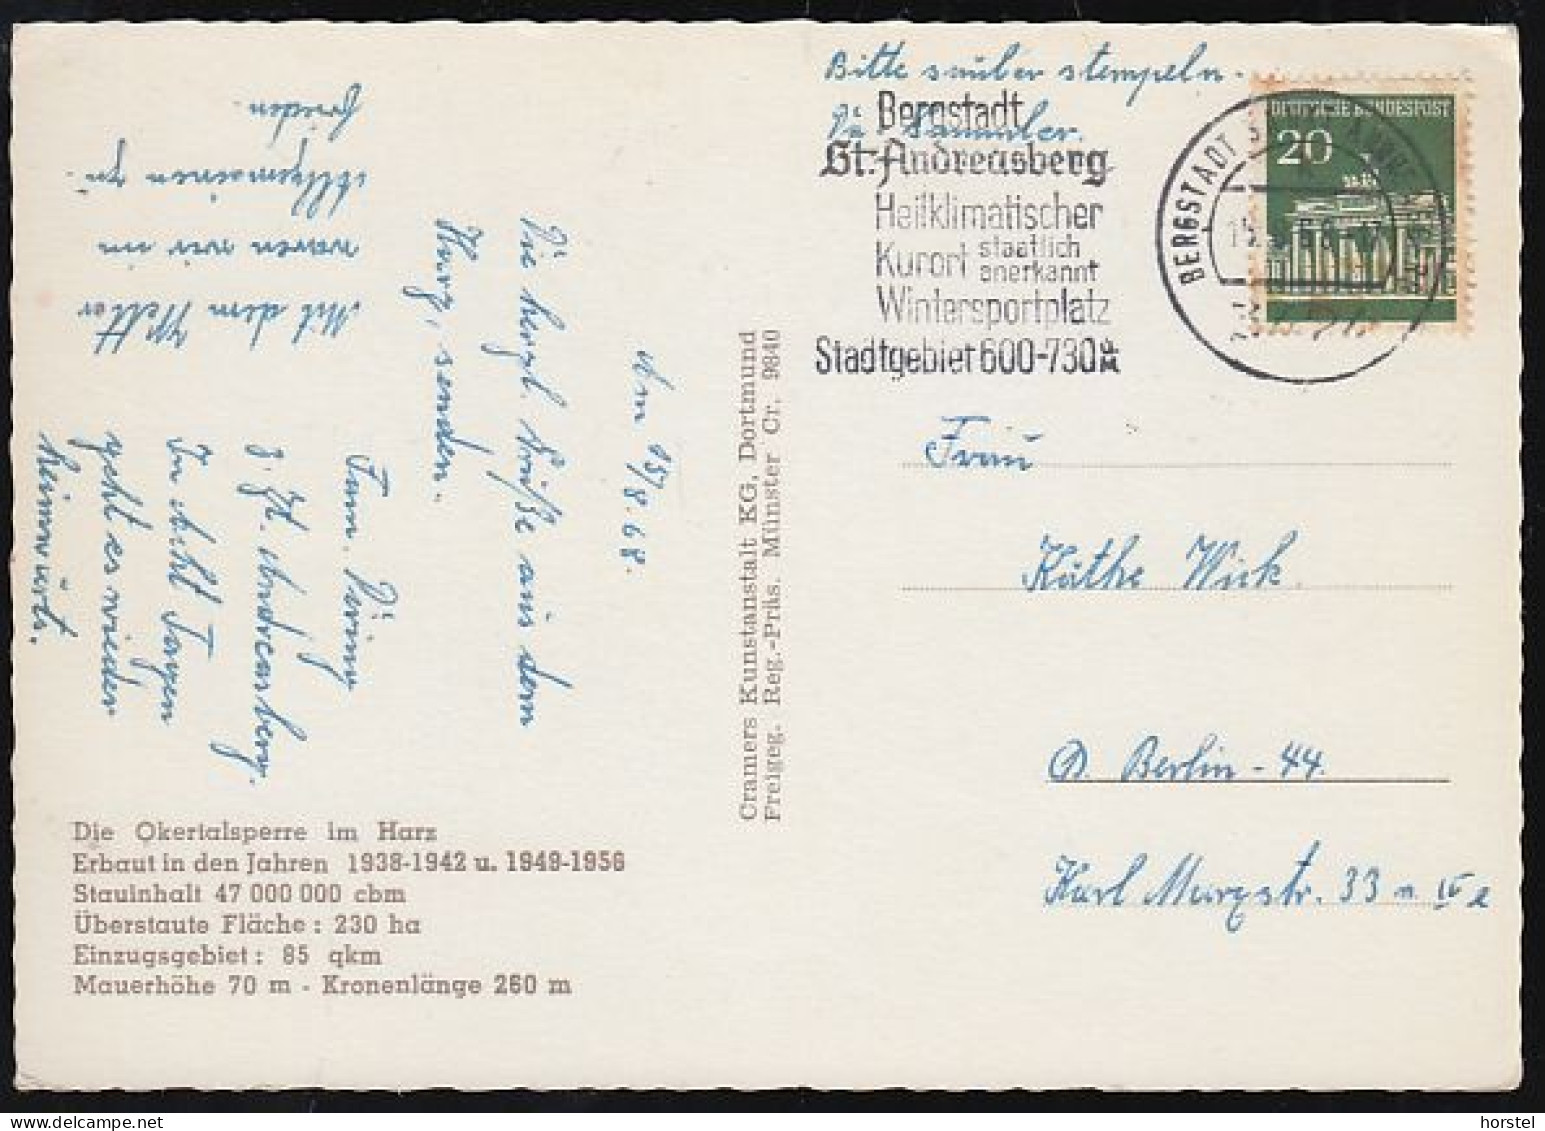 Bitte sauber stempeln.
für Sammler.
Bergstadt
St. Andreasberg
Heilklimatischer
Kurort staatlich
anerkannt
Wintersportplatz
Stadtgebiet 600-730
BERGSTADT
DEUTSCHE BUNDESPOST
20
Am 15/8.68.
Die herzl. Grüße aus dem
Harz, senden.
Fam.
z. Zt. Andreasberg.
In acht Tagen
geht es wieder
heimwärts.
Mit dem Wetter
waren wir im
allgemeinen zu-
frieden
Cramers Kunstanstalt KG, Dortmund
Freigeg. Reg.-Präs. Münster Cr. 9840
Frau
Käthe Wick.
D. Berlin-44.
Karl Marxstr. 33
Die Okertalsperre im Harz
Erbaut in den Jahren 1938-1942 u. 1949-1956
Stauinhalt 47 000 000 cbm
Überstaute Fläche : 230 ha
Einzugsgebiet : 85 qkm
Mauerhöhe 70 m - Kronenlänge 260 m
horstel